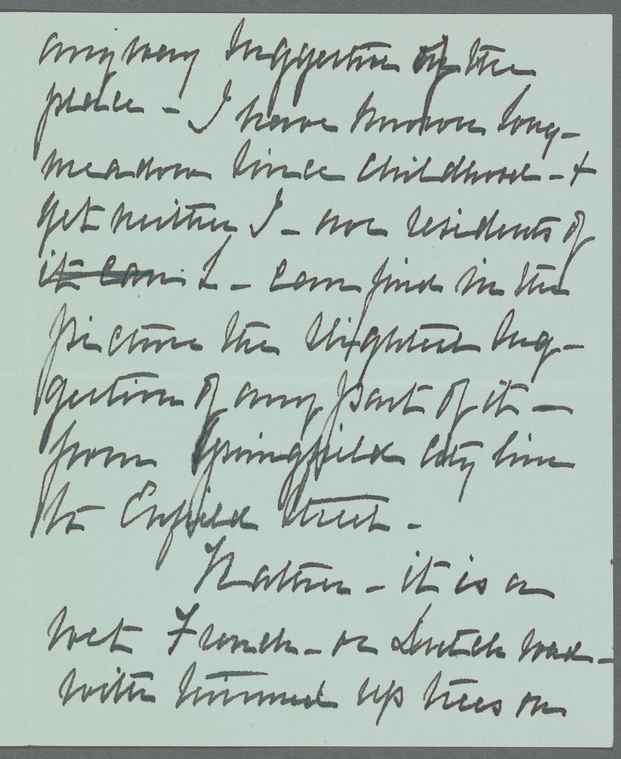 any way suggestive of the
place - I have known Long-
meadow since childhood - &
yet neither I - nor residents of
it can I - can find in the
picture the slightest sug-
gestion of any part of it -
from Springfield City line
to Enfield Street -
Rather - it is a
wet French - or Dutch road -
with trimmed up trees on